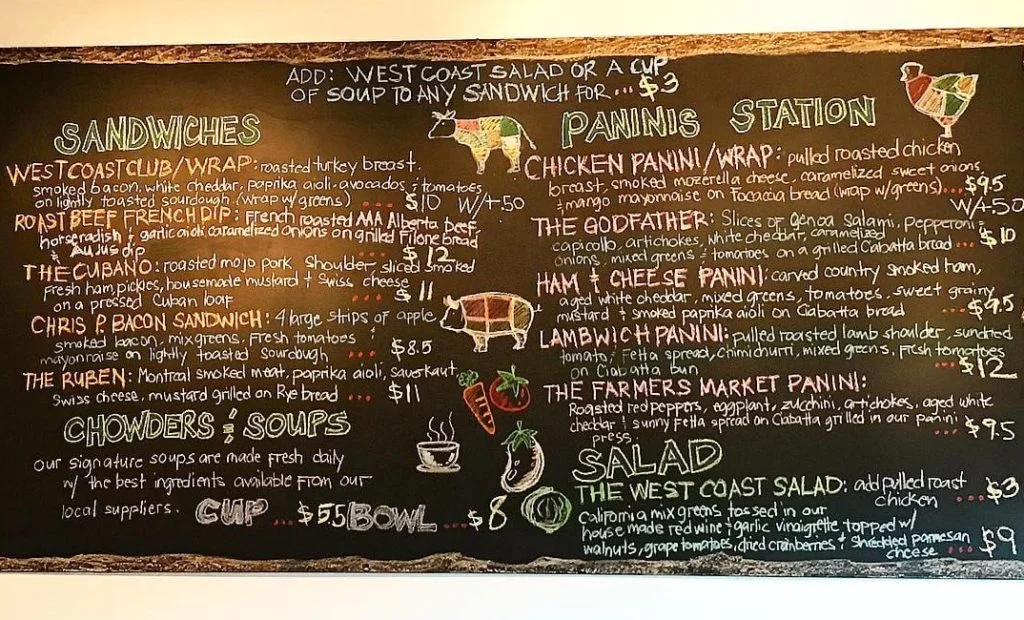 ADD: WEST COAST SALAD OR A CUP
OF SOUP TO ANY SANDWICH FOR... $3
SANDWICHES
WEST COAST CLUB/WRAP: roasted turkey breast.
smoked bacon, white cheddar, paprika aioli-avocados & tomatoes
on lightly toasted sourdough (wrap w/greens) .... $10 W/+.50
ROAST BEEF FRENCH DIP: French roasted AAA Alberta beef,
horseradish & garlic aioli caramelized onions on grilled Filone bread
& Au Jus dip ... $12
THE CUBANO: roasted mojo pork Shoulder, sliced smoked
Fresh ham, pickles, housemade mustard & Swiss cheese
on a pressed Cuban loaf ... $11
CHRIS P. BACON SANDWICH: 4 large strips of apple
smoked bacon, mix greens, Fresh tomatoes &
mayonnaise on lightly toasted Sourdough ... $8.5
THE RUBEN: Montreal smoked meat, paprika aioli, sauerkaut,
Swiss cheese, mustard grilled on Rye bread ... $11
CHOWDERS & SOUPS
our signature soups are made fresh daily
w/ the best ingredients available from our
local suppliers. CUP ... $5.5 BOWL ... $8
PANINIS STATION
CHICKEN PANINI/WRAP: pulled roasted chicken
breast, smoked mozerella cheese, caramelized sweet onions,
& mango mayonnaise on Focaccia bread (wrap w/greens)... $9.5
W/+.50
THE GODFATHER: Slices of genoa Salami, Pepperoni &
capicollo, artichokes, white cheddar, caramelized
onions, mixed greens & tomatoes on a grilled Ciabatta bread ... $10
HAM & CHEESE PANINI: carved country smoked ham,
aged white cheddar, mixed greens, tomatoes, sweet grainy
mustard & smoked paprika aioli on Ciabatta bread ... $9.5
LAMBWICH PANINI: pulled roasted lamb shoulder, sundried
tomato, Fetta spread, chimichurri, mixed greens, fresh tomatoes
on Ciabatta bun ... $12
THE FARMERS MARKET PANINI:
Roasted red peppers, eggplant, zucchini, artichokes, aged white
cheddar & sunny Fetta spread on Ciabatta grilled in our panini
press. ... $9.5
SALAD
THE WEST COAST SALAD: add pulled roast
chicken .... $3
California mix greens tossed in our
house made red wine & garlic vinaigrette topped w/
walnuts, grape tomatoes, dried cranberries & Shredded parmesan
cheese ... $9